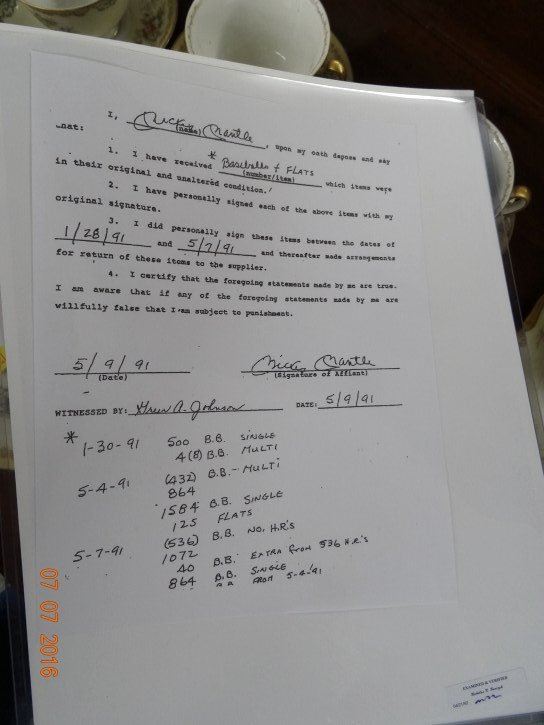 I, Mickey Mantle, upon my oath depose and say
(name)
that:
1. I have received * Baseballs + FLATS which items were
(number/item)
in their original and unaltered condition.
2. I have personally signed each of the above items with my
original signature.
3. I did personally sign these items between the dates of
1/28/91 and 5/7/91 and thereafter made arrangements
for return of these items to the supplier.
4. I certify that the foregoing statements made by me are true.
I am aware that if any of the foregoing statements made by me are
willfully false that I am subject to punishment.
5/9/91 Mickey Mantle
(Date) (Signature of Affiant)
WITNESSED BY: Greer A. Johnson DATE: 5/9/91
* 1-30-91 500 B.B. SINGLE
4(8) B.B. MULTI
5-4-91 (432) B.B.- MULTI
864
1584 B.B. SINGLE
125 FLATS
5-7-91 (536) B.B. NO. H.R'S
1072
40 B.B. EXTRA FROM 536 H.R'S
864 B.B. SINGLE
FROM 5-4-91
EXAMINED & VERIFIED
07 07 2016